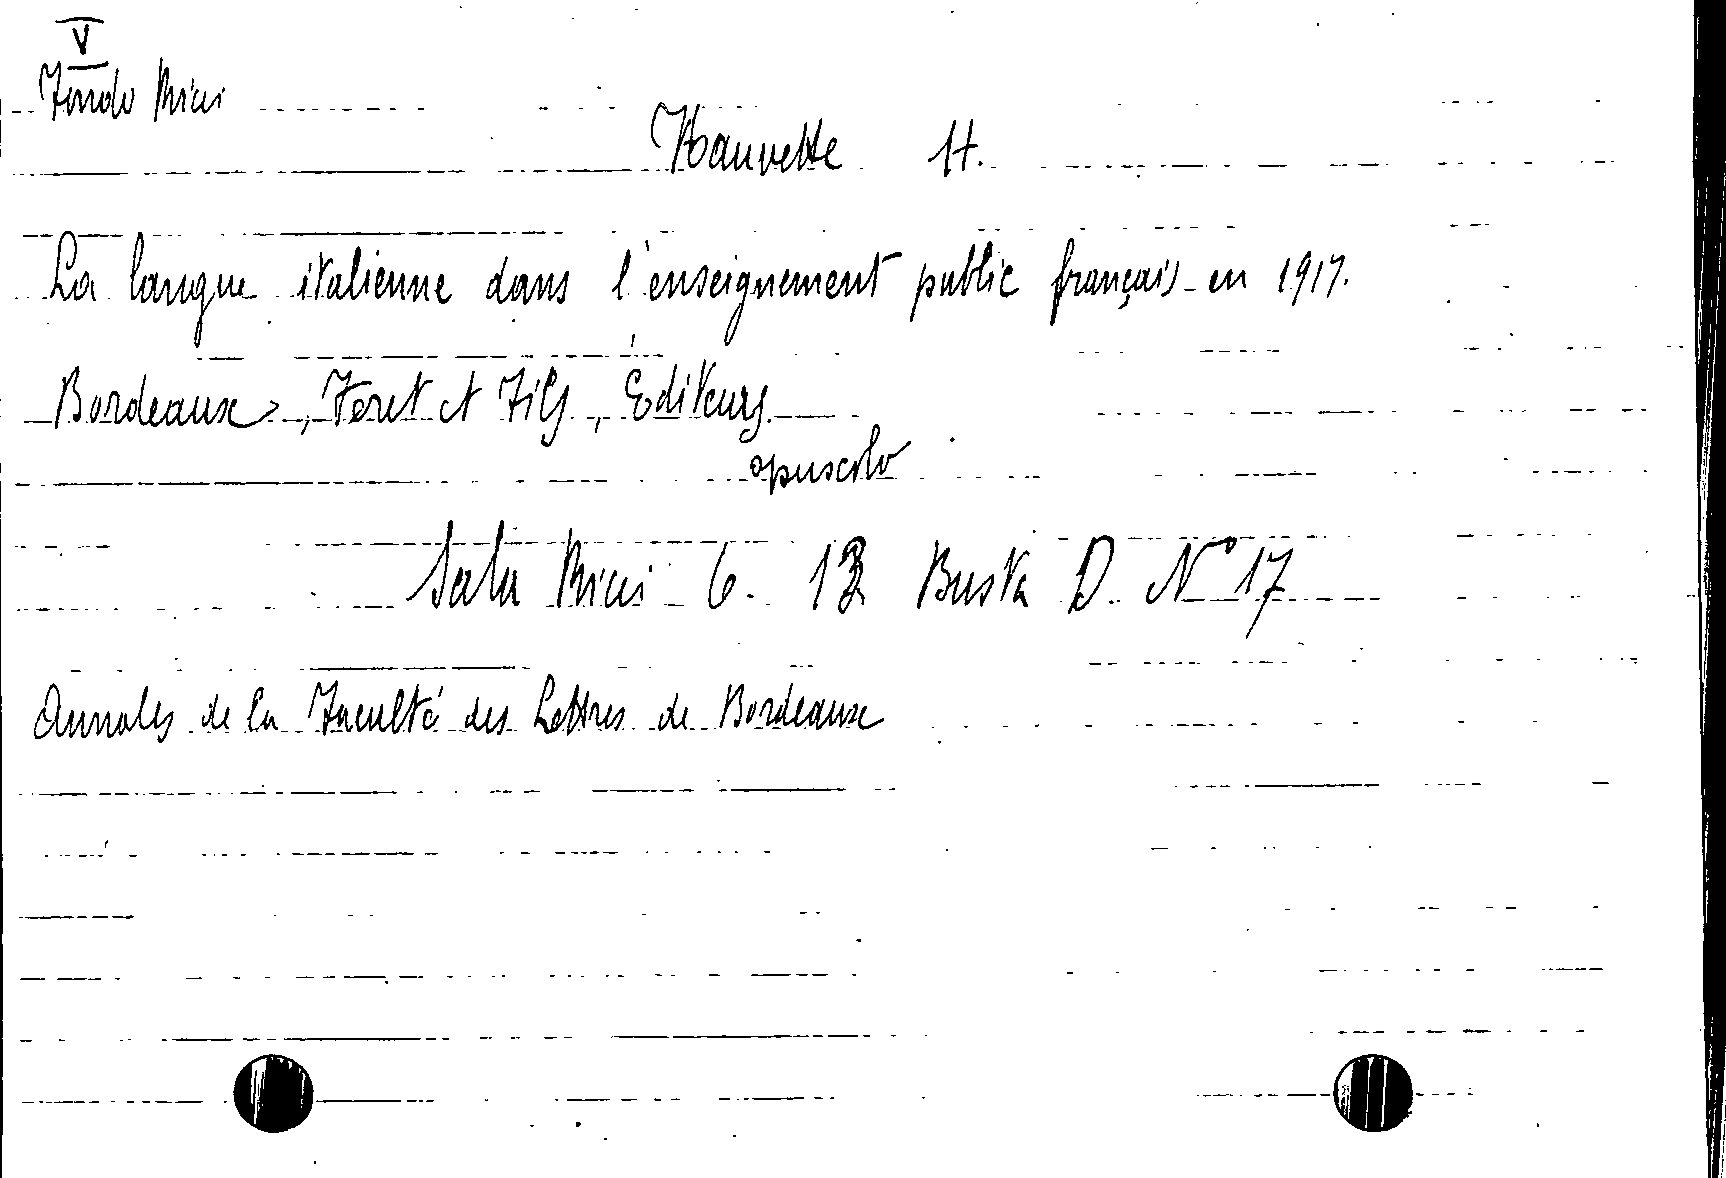 V
Fondo Ricci
Hauvette H.
La langue italienne dans l'enseignement public français en 1917.
Bordeaux, Feret et Fils, Editeurs.
opuscolo
Sala Ricci 6. 13 Busta D. N° 17
Annales de la Faculté des Lettres de Bordeaux